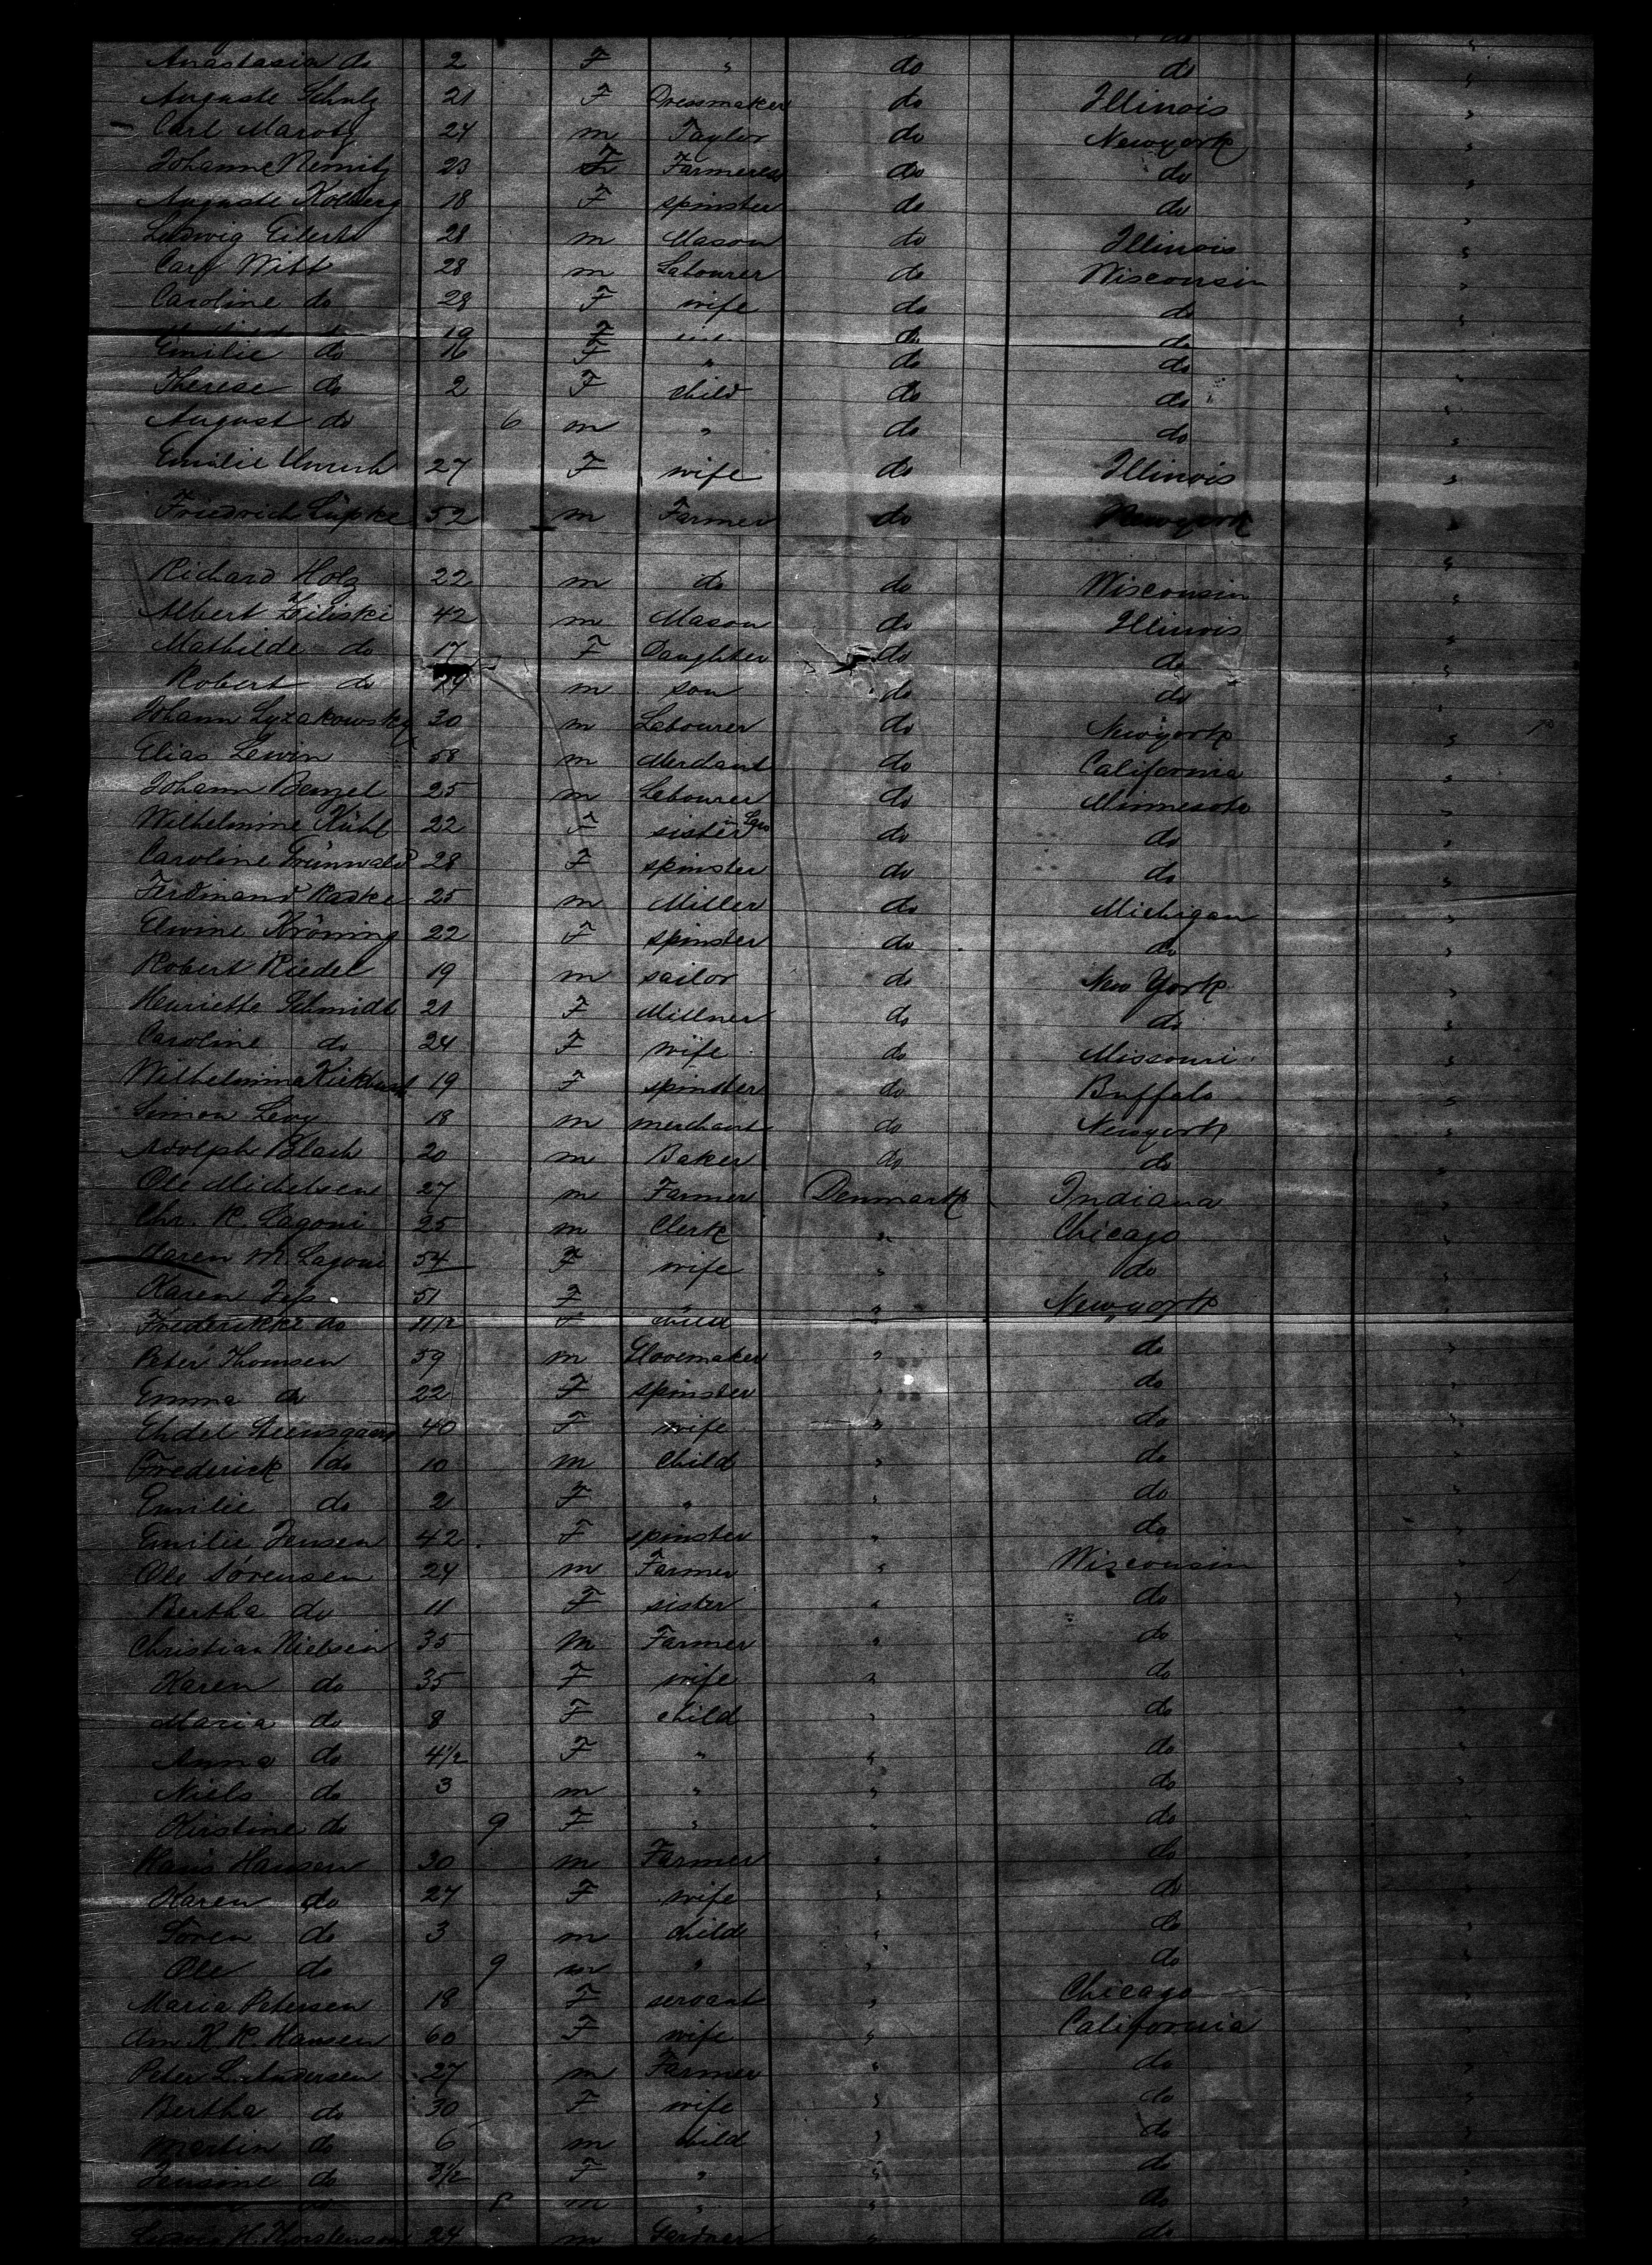 do
Anastasia do 2 F " do do "
Auguste Schulz 21 F Dressmaker do Illinois "
Carl Marotz 24 m Taylor do Newyork "
Johanne Nemitz 23 F Farmeress do do "
Auguste Kolberg 18 F spinster do do "
Ludwig Eilert 28 m Mason do Illinois "
Carl Witt 28 m Labourer do Wisconsin "
Caroline do 28 F wife do do "
19 F do do
Emilie do 16 F " do do "
Therese do 2 F child do do "
August do 6 m " do do "
Emilie Unruh 27 F wife do Illinois "
Friedrich Lüpke 52 m Farmer do Newyork "
Richard Holz 22 m do do Wisconsin "
Albert Ziliski 42 m Mason do Illinois "
Mathilde do 17 F Daughter do do "
Robert do 14 m son do do "
Johann Lyzakowsky 30 m Labourer do Newyork "
Elias Lewin 58 m Merchant do California "
Johann Benzel 25 m Labourer do Minnesota "
Wilhelmine Kühl 22 F sister in Law do do "
Caroline Grünwald 28 F spinster do do "
Ferdinand Raske 25 m Miller do Michigan "
Elwine Kröning 22 F spinster do do "
Robert Riedel 19 m sailor do New York "
Henriette Schmidt 21 F Millner do do "
Caroline do 24 F wife do Missouri "
Wilhelmina 19 F spinster do Buffalo "
Simon Levy 18 m merchant do Newyork "
Adolph Blach 20 m Baker do do "
Ole Michelsen 27 m Farmer Denmark Indiana "
Chr. R. Lagoni 25 m Clerk " Chicago "
Karen M. Lagoni 54 F wife " do "
Karen Jess 51 F " " Newyork "
Frederikke do 11 1/2 F child "
Peter Thomsen 59 m Glovemaker " do "
Emma do 22 F spinster " do "
Steensgaard 40 F wife " do "
Frederick do 10 m Child " do "
Emilie do 2 F " " do "
Emilie Jensen 42 F spinster " do "
Ole Sørensen 24 m Farmer " Wisconsin "
Bertha do 11 F sister " do "
Christian Nielsen 35 m Farmer " do "
Karen do 35 F wife " do "
Maria do 8 F child " do "
Anna do 4 1/2 F " " do "
Niels do 3 m " " do "
Kirstine do 9 F " " do "
Hans Hansen 30 m Farmer " do "
Karen do 27 F wife " do "
Sören do 3 m child " do "
Ole do 9 m " " do "
Maria Petersen 18 F servant " Chicago "
Ann K. R. Hansen 60 F wife " California "
Peter L. Andersen 27 m Farmer " do "
Bertha do 30 F wife " do "
Martin do 6 m child " do "
Jensine do 3 1/2 F " " do "
8 m " " do "
24 m Gardner " do